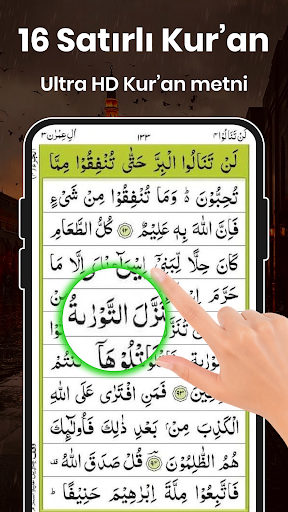 16 Satırlı Kur’an
Ultra HD Kur’an metni
لَنْ تَنَالُوا ۴ اٰلِ عِمْرٰن ۳
لَنْ تَنَالُوا الْبِرَّ حَتّٰى تُنْفِقُوْا مِمَّا
تُحِبُّوْنَ ؕ وَمَا تُنْفِقُوْا مِنْ شَىْءٍ
فَاِنَّ اللّٰهَ بِهٖ عَلِيْمٌ ﴿۹۲﴾ كُلُّ الطَّعَامِ
كَانَ حِلًّا لِّبَنِىْٓ اِلَّا مَا
حَرَّمَ
نَزَّلَ التَّوْرٰىةُ
فَمَنِ افْتَرٰى عَلَى اللّٰهِ
الْكَذِبَ مِنْۢ بَعْدِ ذٰلِكَ فَاُولٰٓئِكَ
هُمُ الظّٰلِمُوْنَ ﴿۹۴﴾ قُلْ صَدَقَ اللّٰهُ
فَاتَّبِعُوْا مِلَّةَ اِبْرٰهِيْمَ حَنِيْفًا ؕ